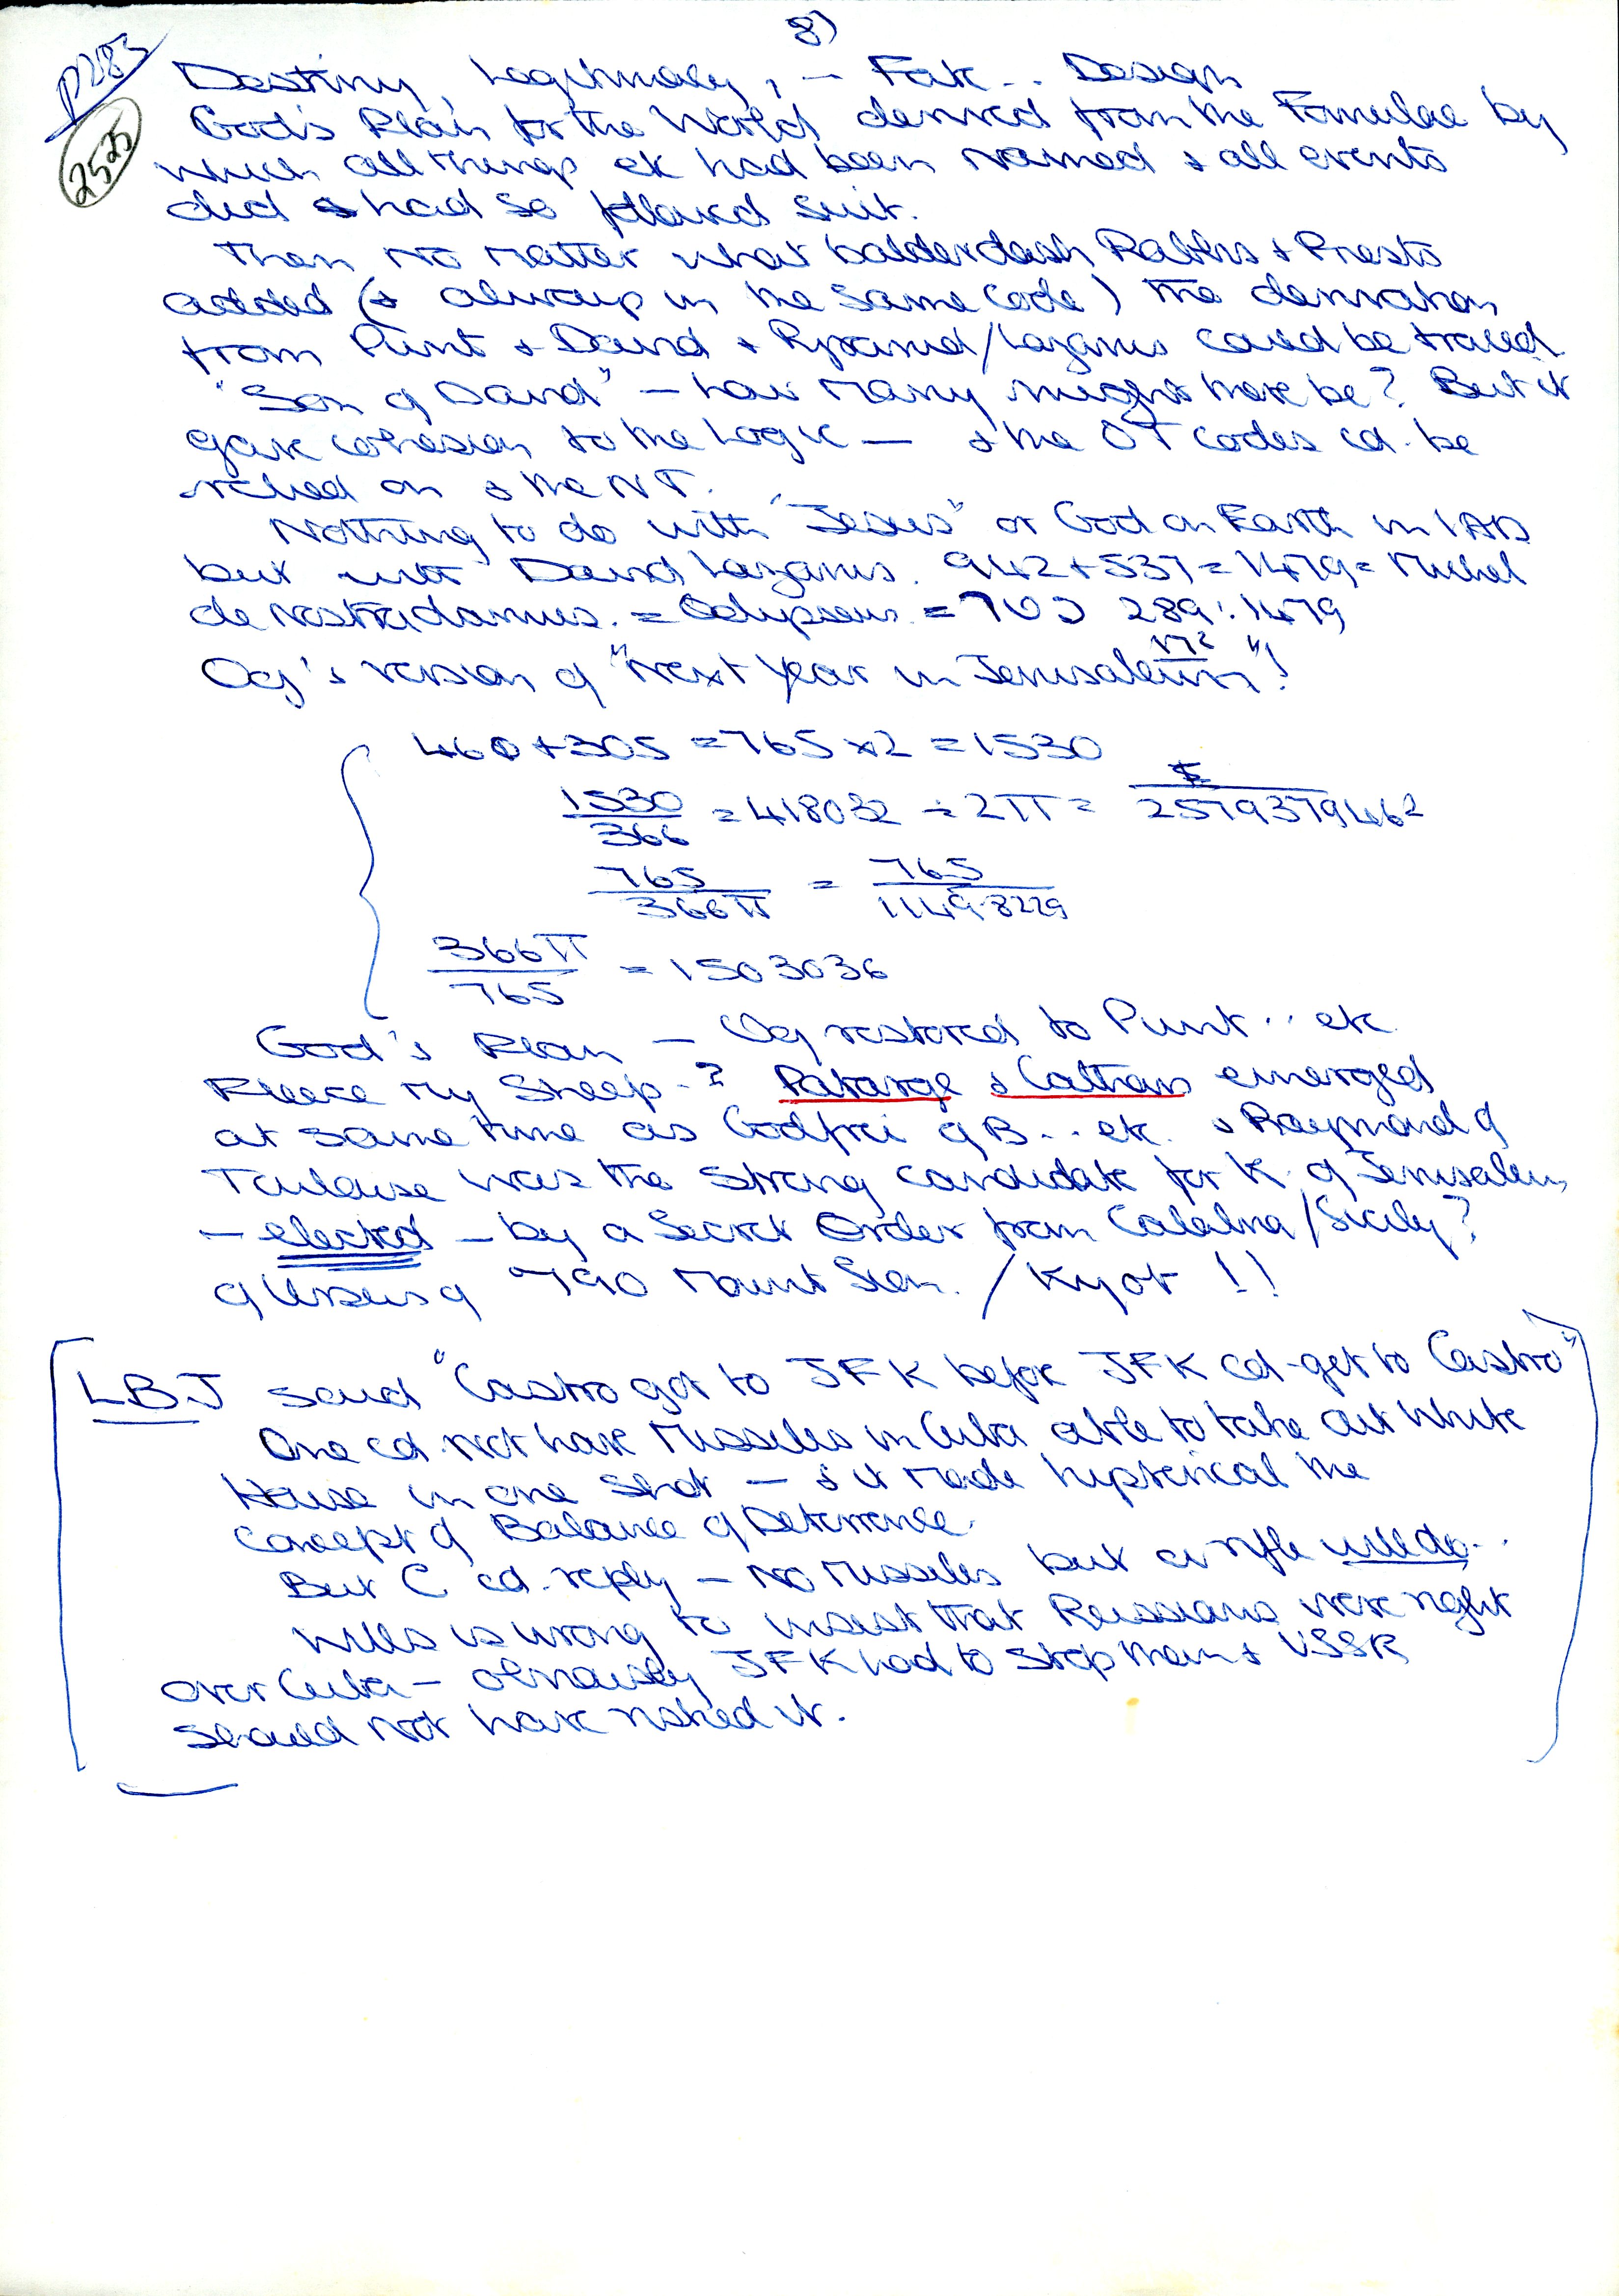 8)
p283
2525
Destiny, Legitimacy, — Fate .. Design
God's Plan for the World derived from the Formulae by
which all things etc had been named & all events
did & had so followed suit.
Then no matter what balderdash Rabbis & Priests
added (& always in the same code) the derivation
from Punt & David & Pyramid/Lazarus could be traced.
"Son of David" — how many might there be? But it
gave cohesion to the Logic — & the OT codes cd. be
relied on & the NT.
Nothing to do with "Jesus" or God on Earth in 1 AD
but with David Lazarus. 942 + 537 = 1479 = Michel
de Nostradamus. = Odysseus = 289 : 1479
Og's version of "Next Year in Jerusalem"!
460 + 305 = 765 x 2 = 1530
1530/366 = 418032 ÷ 2π = 2579379462
765/366π = 765/1149.8229
366π/765 = 1503036
God's Plan — Og restored to Punt .. etc.
Fleece my Sheep -? Patarge & Cathars emerged
at same time as Godfroi of B... etc. & Raymond of
Toulouse was the strong candidate for K. of Jerusalem
— elected — by a Secret Order from Calabria/Sicily?
of Ursus of 790 Mount Sion. / Kyot !!
LBJ said "Castro got to JFK before JFK cd. get to Castro"
One cd. not have Missiles in Cuba able to take out White
House in one shot — & it made hysterical the
Concept of Balance of Deterrence.
But C cd. reply — No Missiles but a rifle will do..
Mills is wrong to insist that Russians were right
over Cuba — obviously JFK had to stop them & USSR
should not have risked it.